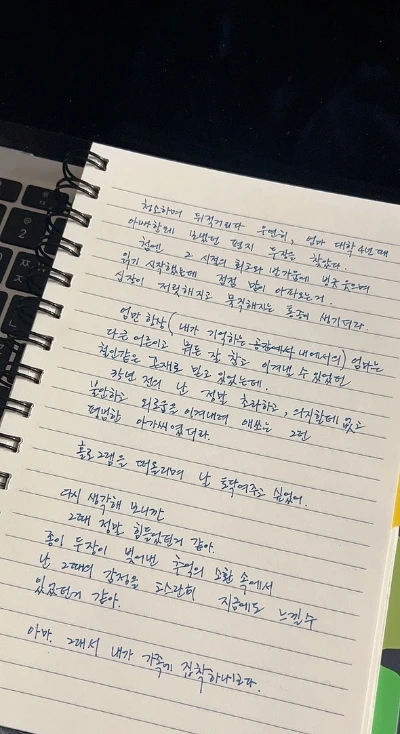 청소하며 뒤적거리다 우연히, 엄마 대학 4년때
아빠한테 보냈던 편지 두장을 찾았다.
첨엔, 그 시절의 회고와 반가움에 빙긋 웃으며
읽기 시작했는데 점점 맘이 아파오는거.
심장이 저릿해지고 묵직해지는 통증이 생기더라.
엄만 항상(내가 기억하는 공감에서 내에서의) 엄마는
다른 어른이고 뭐든 잘 참고 이겨낼 수 있었던
철인같은 존재로 믿고 있었는데.
참 초라하고, 의지할데 없고
불안하고 외로움을 이겨내려 애쓰는 그런
평범한 아가씨였더라.
홀로그램을 떠올리며 날 토닥여주고 싶었어.
다시 생각해 보니깐
그때 정말 힘들었던거 같아.
종이 두장이 빚어낸 추억의 소환 속에서
난 그때의 감정을 고스란히 지금에도 느낄수
있었던거 같아.
아마, 그래서 내가 가족에 집착하나보다.
2